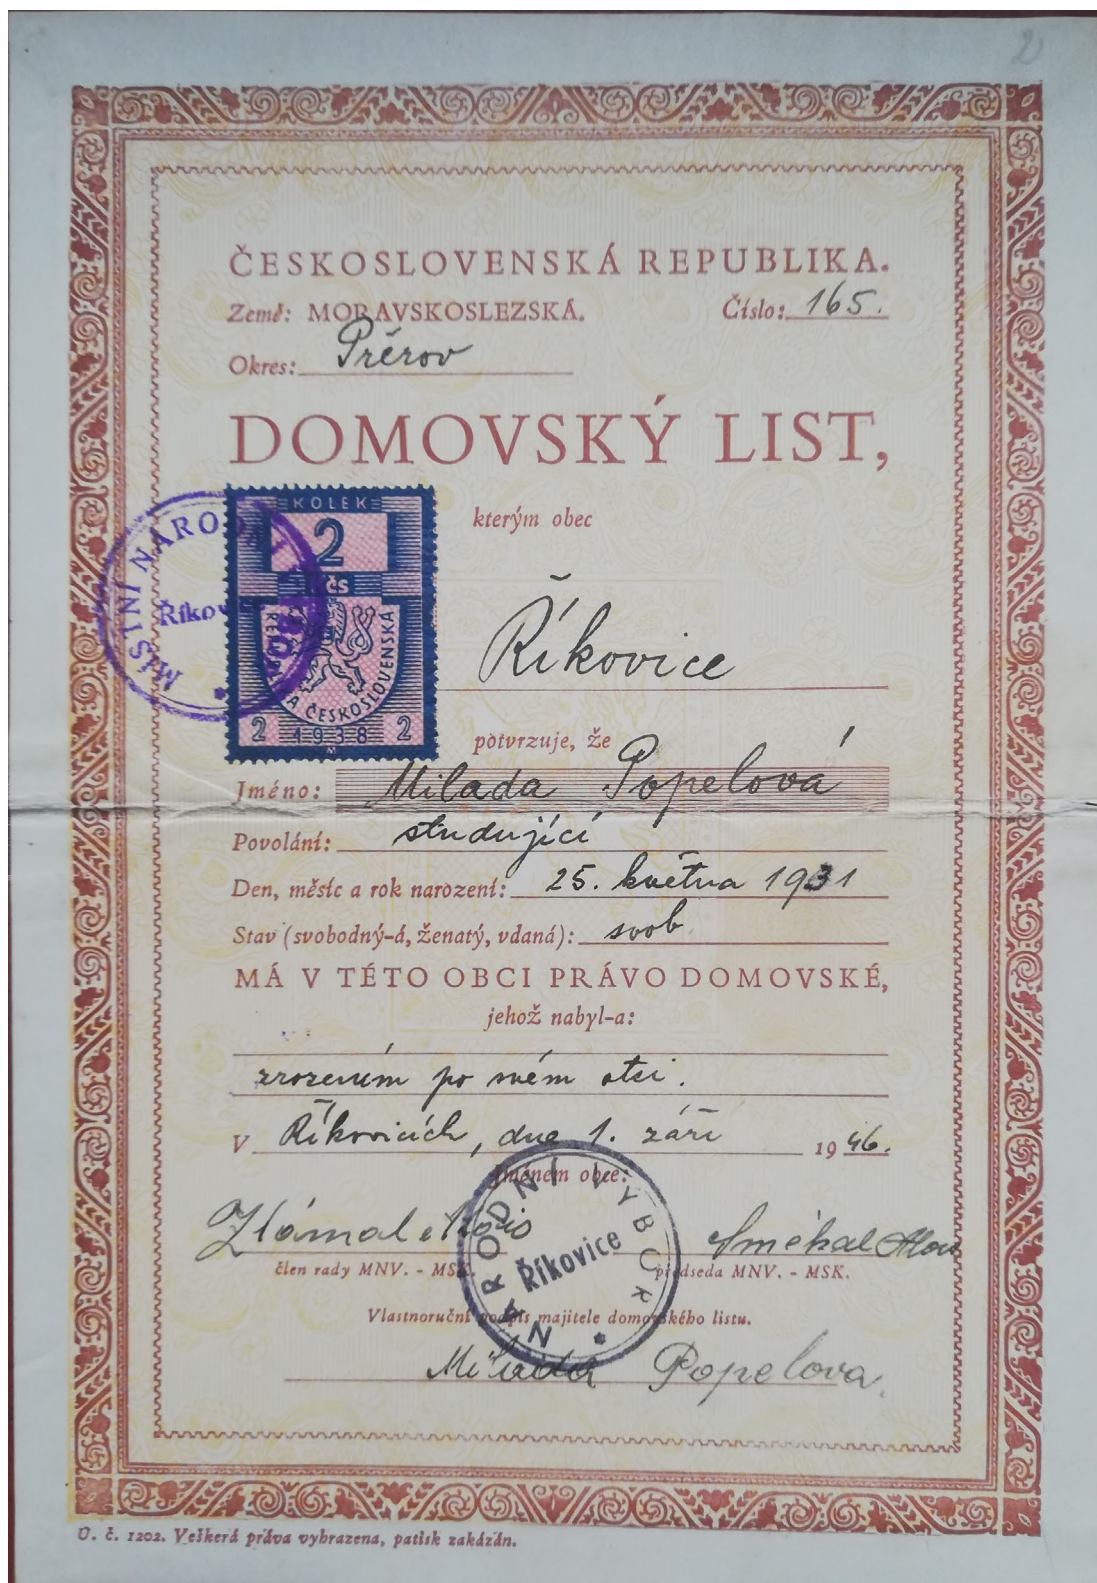 2
ČESKOSLOVENSKÁ REPUBLIKA.
Země: MORAVSKOSLEZSKÁ. Číslo: 165.
Okres: Přerov
DOMOVSKÝ LIST,
KOLEK
2
KČS
REPUBLIKA ČESKOSLOVENSKÁ
2 1938 2
MÍSTNÍ NÁRODNÍ VÝBOR
Říkovice
kterým obec
Říkovice
potvrzuje, že
Jméno: Milada Popelová
Povolání: studující
Den, měsíc a rok narození: 25. května 1931
Stav (svobodný-á, ženatý, vdaná): svob
MÁ V TÉTO OBCI PRÁVO DOMOVSKÉ,
jehož nabyl-a:
zrozením po svém otci.
V Říkovicích, dne 1. září 1946.
Jménem obce:
Smékal Alois
člen rady MNV. - MSK. předseda MNV. - MSK.
NÁRODNÍ VÝBOR
Říkovice
Vlastnoruční podpis majitele domovského listu.
Milada Popelova
Ú. č. 1202. Veškerá práva vyhrazena, patisk zakázán.